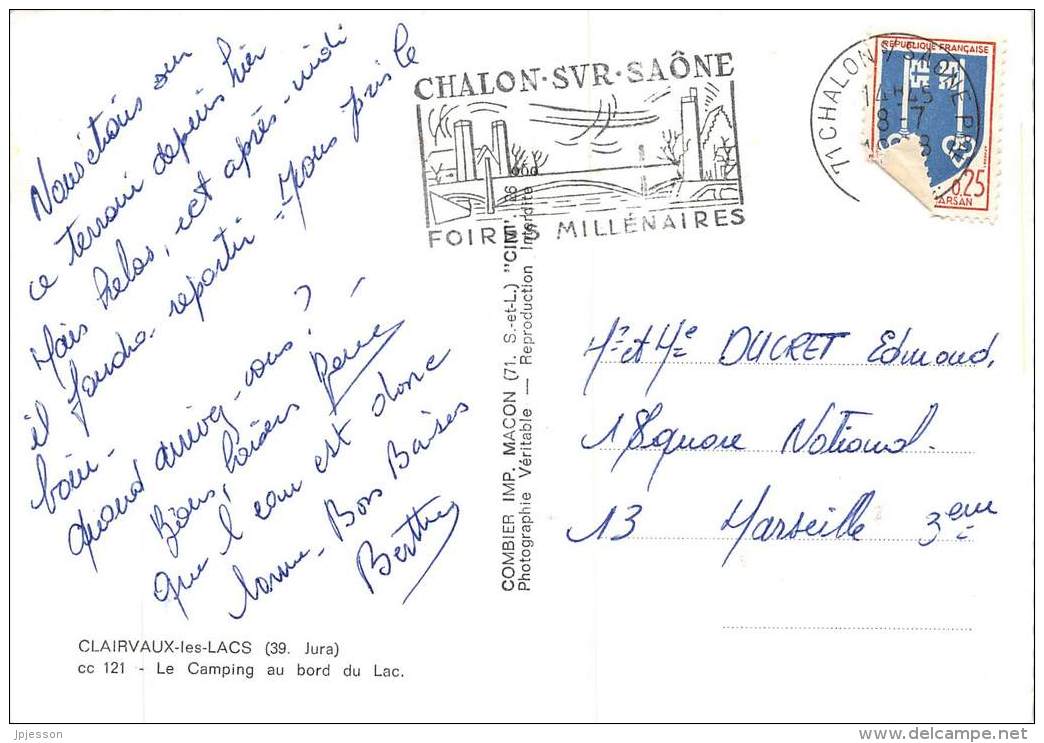 Nous étions sur
ce terrain depuis hier
Mais hélas, cet après-midi
il faudra repartir - Nous pris le
bain -
Quand arrivez-vous? -
Bons baisers
que l'eau est donc
bonne - Bons Baises
Berthe
CLAIRVAUX-les-LACS (39. Jura)
cc 121 - Le Camping au bord du Lac.
COMBIER IMP. MACON (71. S.-et-L.) "CIM"
Photographie Véritable — Reproduction Interdite
CHALON·SVR·SAÔNE
FOIRES MILLÉNAIRES
71 CHALON S/ SAONE PPAL
14H45
8-7
REPUBLIQUE FRANÇAISE
0,25
MARSAN
Mr et Me DUCRET Edmond,
18 Square National.
13 Marseille 3eme
jpjesson
delcampe.net